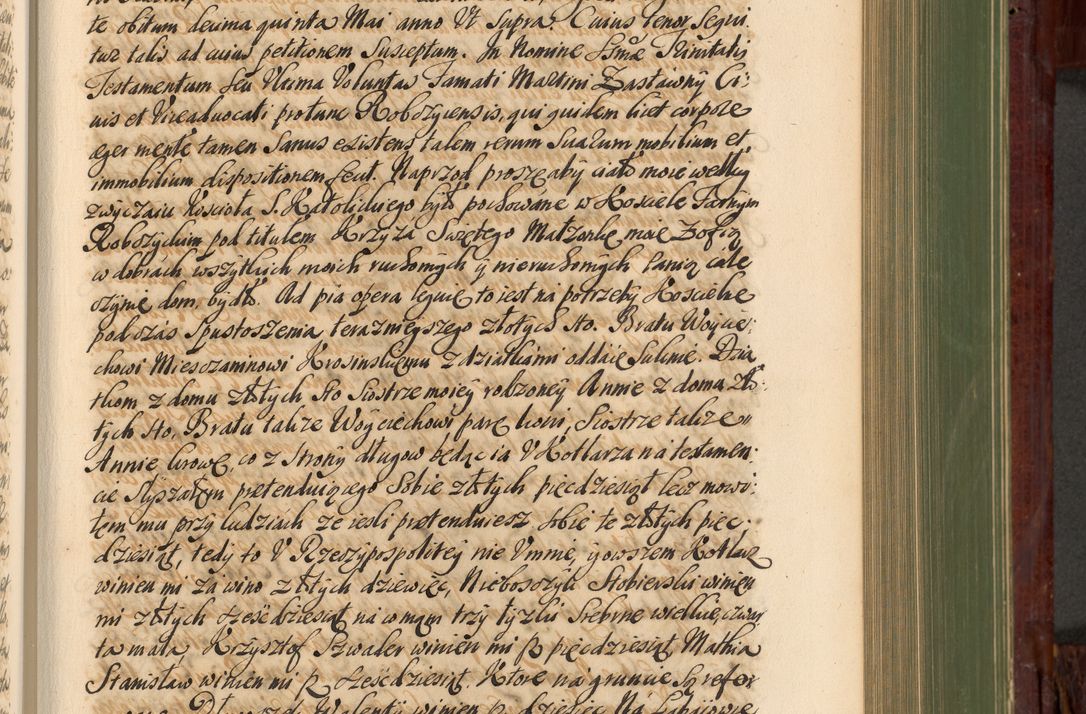 te obitum decima quinta Mai anno Vt Supra. Cuius tenor Sequi
tur talis ad cuius petitionem Susceptum. In Nomine SSmæ Trinitatis
Testamentum seu Vltima Voluntas Famati Martini Zastawny Ci:
uis et Viceaduocati protunc Robczycensis, qui quidem licet corpore
æger mente tamen Sanus existens talem rerum Suarum mobilium et
immobilium dispositionem fecit. Naprzod proszę aby ciało moie według
zwyczaiu Kościoła S. Katolickiego było pochowane w Kościele Farnym
Robczyckim pod titułem Krzyza Swętego Małzonkę moię Zofią
w dobrach wszytkich moich ruchomych y nieruchomych Panią całe
czynię dom, bydło. Ad pia opera leguię to iest na potrzeby Koscielne
podczas Spustoszenia teraznieyszego złotych sto. Bratu Woycie:
chowi Miesczaninowi Krosinskiemu z dziatkami oddaię Suknie. Dzia
tkom z domu złotych sto Siostrze moiey rodzoney Annie z domu zło:
tych sto, Bratu takze Woyciechowi parę koni, Siostrze takze
Annie krowę, co z Strony długow będącia V Kotlarza na testamen:
cie Słyszałem pretenduiącego Sobie złotych pięcdziesiąt lecz mowi:
łem mu przy ludziach ze iesli pretenduiesz sobie te złotych pięc:
dziesiąt, tedy to V Rzeczypospolitey nie Vmnie, y owszem Kotlarz
winien mi za wino złotych dziewięc, Nieboszczyk Stobierski winien
mi złotych sześćdziesiąt na co mam trzy łyzki Srebrne wielkie, czwar
ta mała Krzysztof Szwaler winien mi fl pięcdziesiąt Mathia
Stanisław winien mi fl sześcdziesiąt. Ktore na gruncie S refor
Walenty winien fl dziesięc Na